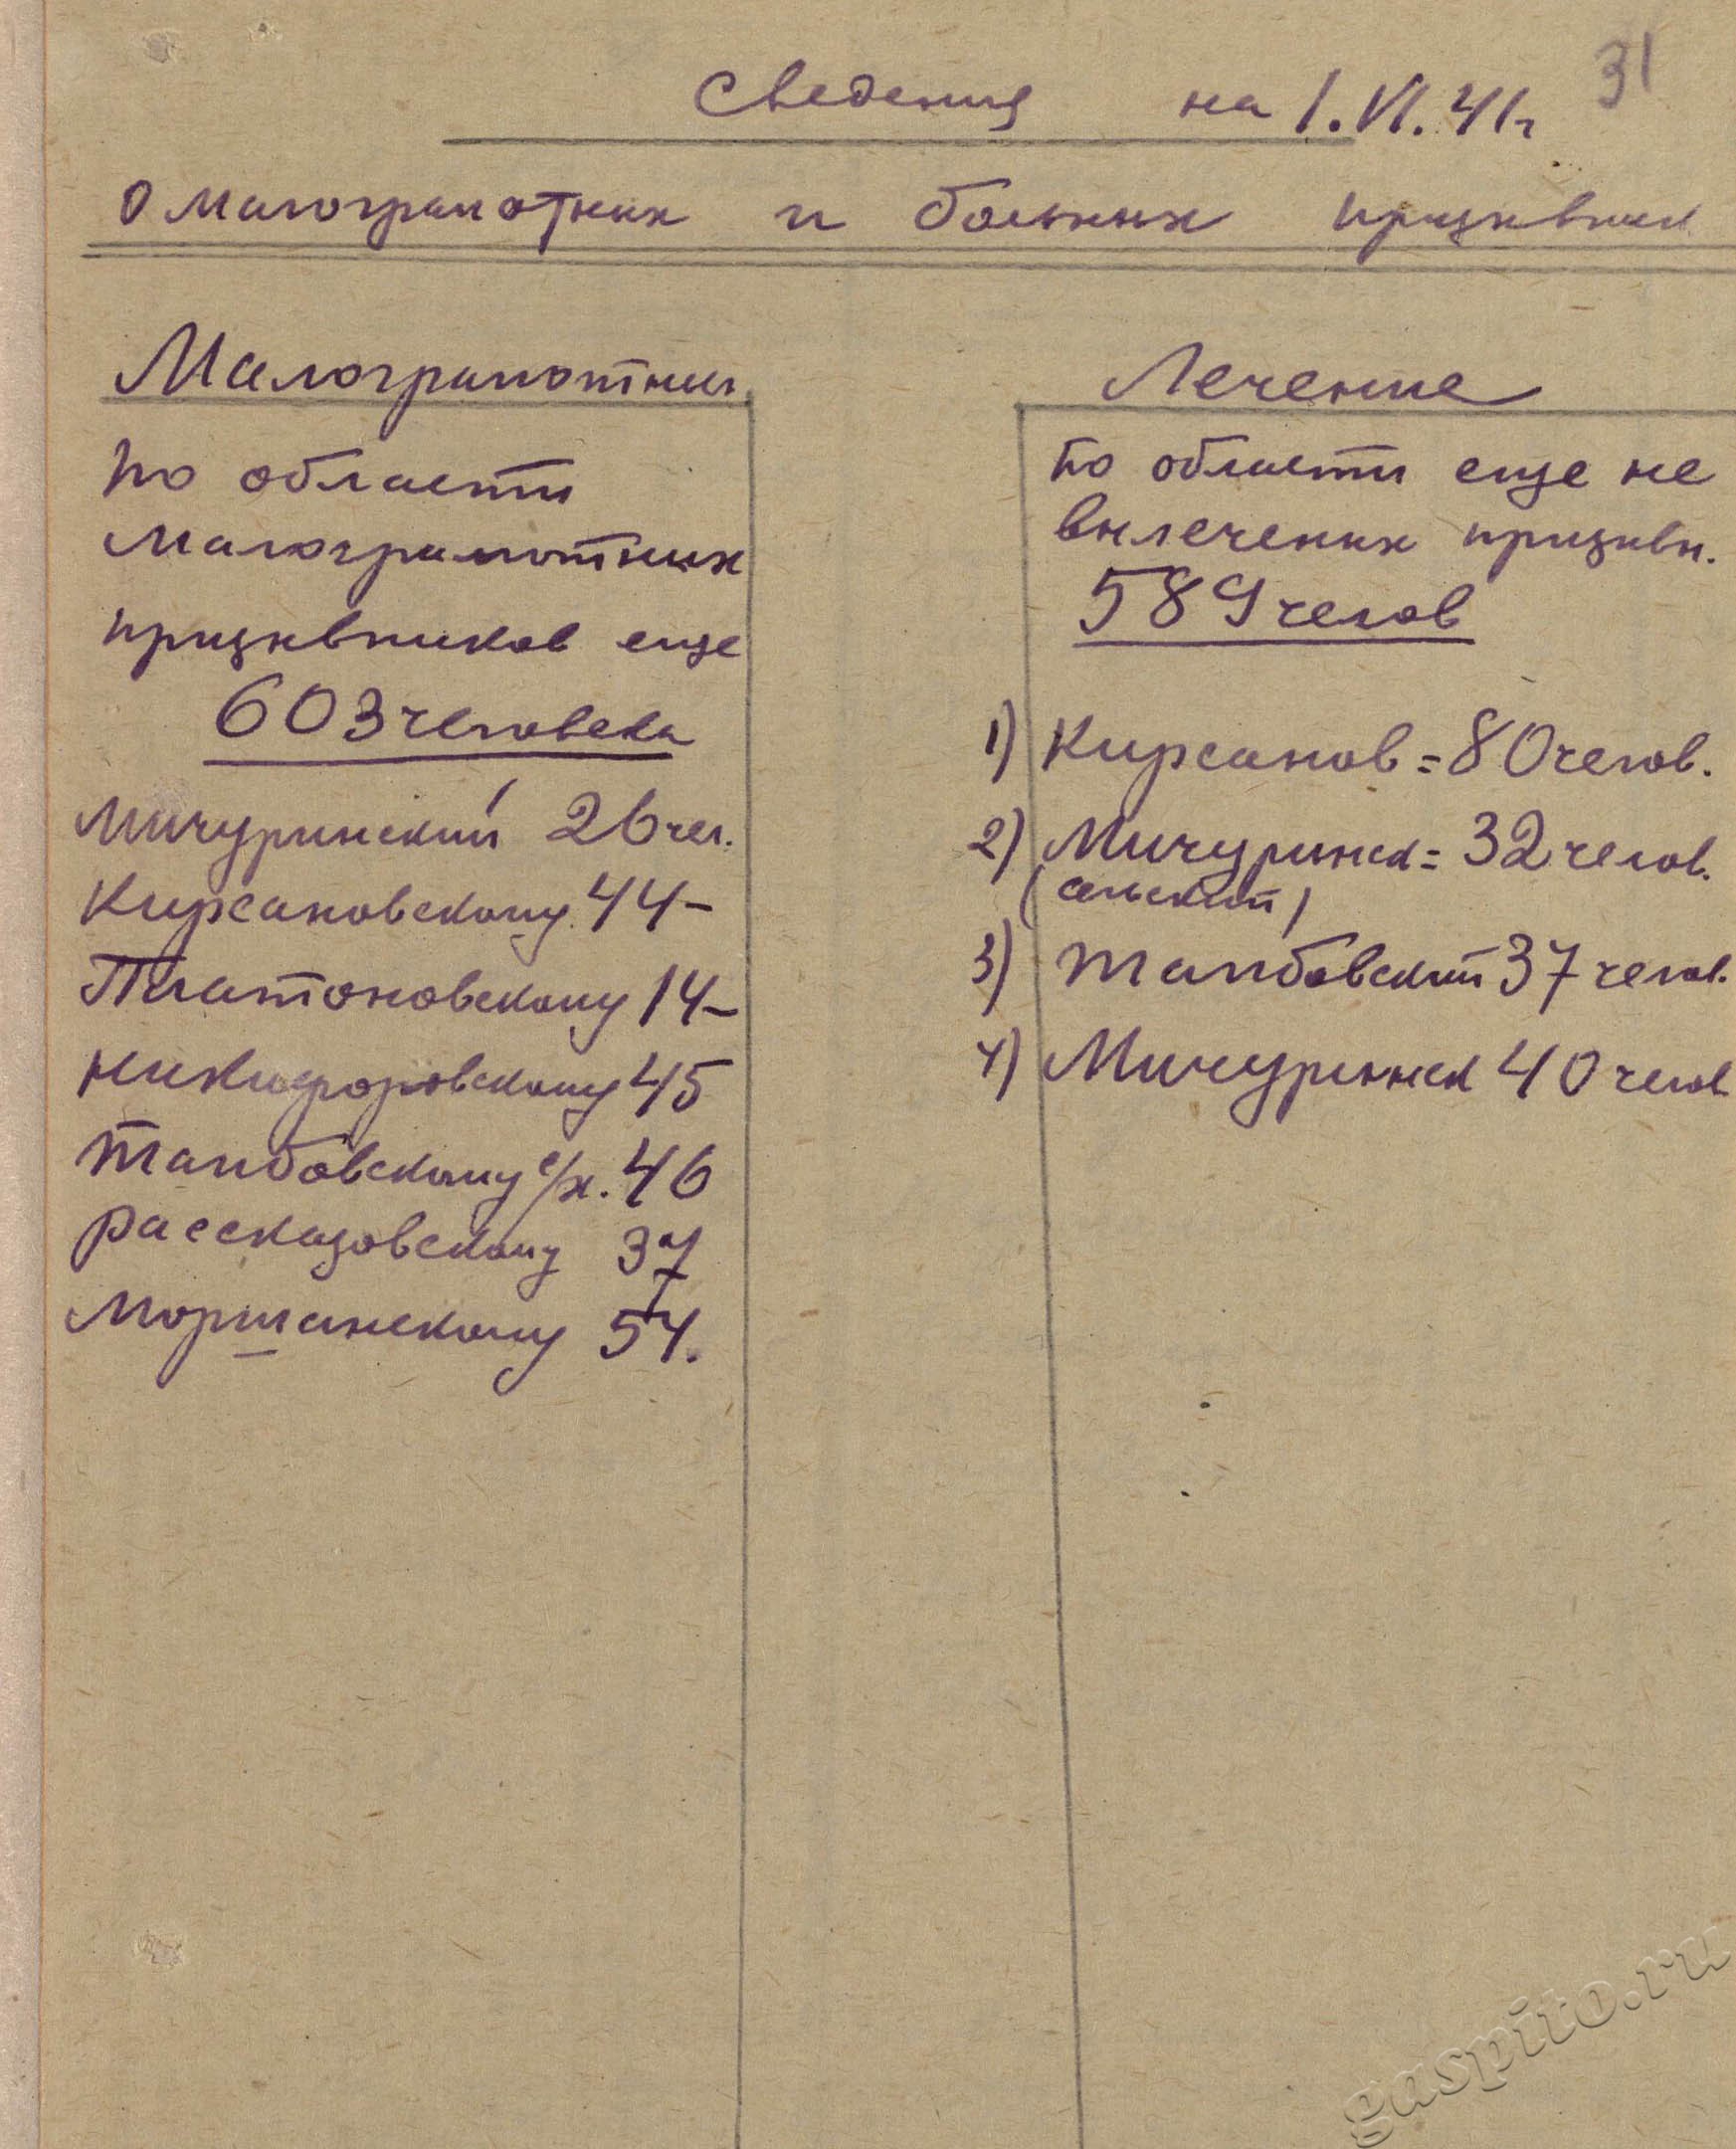 31
Сведения на 1.VI.41г
о малограмотных и больных призывник
Малограмотных
по области
малограмотных
призывников еще
603 человека
Мичуринский 26 чел.
Кирсановскому 44–
Платоновскому 14–
Никифоровскому 45
Тамбовскому с/х. 46
Рассказовскому 37
Моршанскому 54.
Лечение
по области еще не
вылеченых призывн.
589 челов
1) Кирсанов = 80 челов.
2) Мичуринск = 32 челов.
(сельский)
3) Тамбовский 37 челов.
4) Мичуринск 40 челов
gaspito.ru